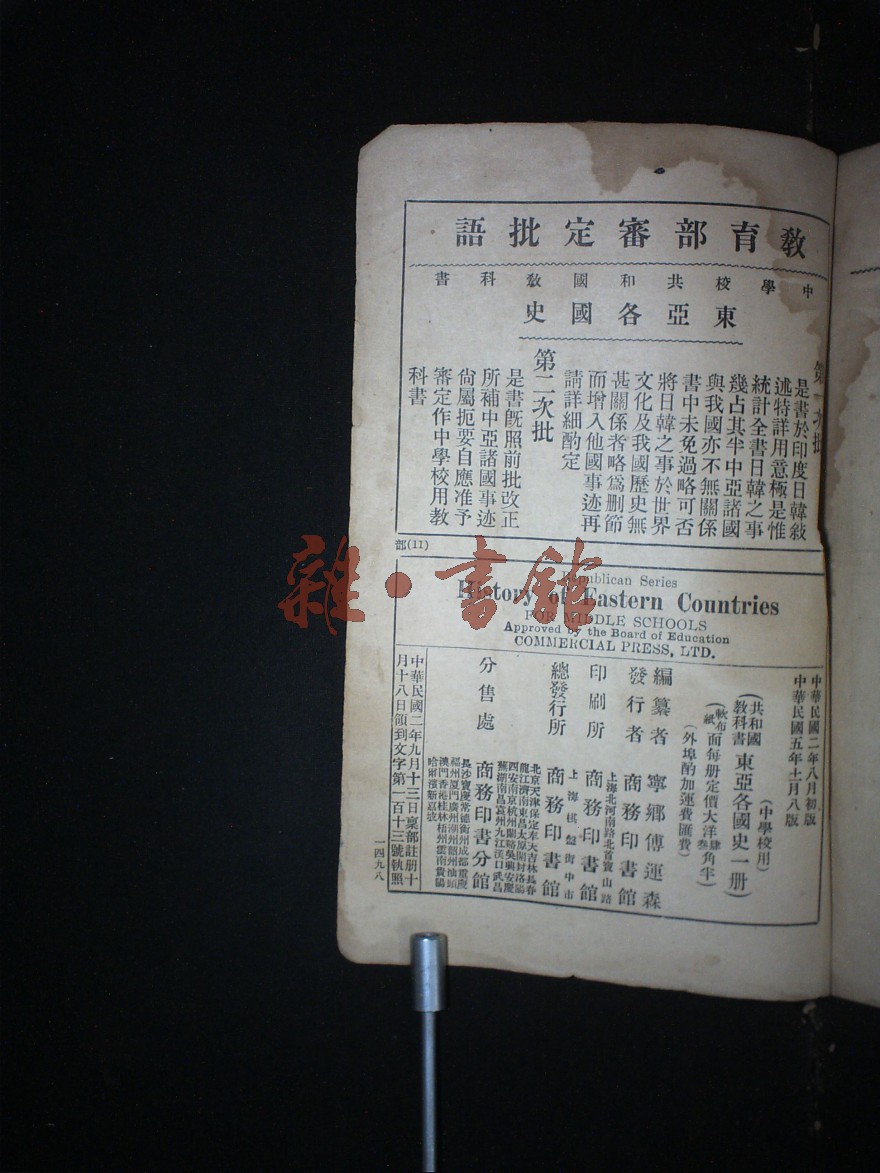 教育部審定批語
中學校共和國教科書
東亞各國史
第一次批
是書於印度日韓敍
述特詳用意極是惟
統計全書日韓之事
幾占其半中亞諸國
與我國亦不無關係
書中未免過略可否
將日韓之事於世界
文化及我國歷史無
甚關係者略爲刪節
而增入他國事迹再
請詳細酌定
第二次批
是書旣照前批改正
所補中亞諸國事迹
尙屬扼要自應准予
審定作中學校用教
科書
部(11)
Republican Series
History of Eastern Countries
FOR MIDDLE SCHOOLS
Approved by the Board of Education
COMMERCIAL PRESS, LTD.
中華民國二年八月初版
中華民國五年十一月八版
(中學校用)
(共和國教科書東亞各國史一册)
(軟布紙面每册定價大洋肆叁角半)
(外埠酌加運費匯費)
編纂者 寧鄉傅運森
發行者 商務印書館
上海北河南路北首寶山路
印刷所 商務印書館
上海棋盤街中市
總發行所 商務印書館
北京天津保定奉天吉林長春
龍江濟南東昌太原開封洛陽
西安南京杭州蘭谿吳興安慶
蕪湖南昌袁州九江漢口武昌
分售處 商務印書分館
長沙寶慶常德衡州成都重慶
福州廈門廣州潮州韶州汕頭
澳門香港桂林梧州雲南貴陽
哈爾濱新嘉坡
中華民國二年九月十三日稟部註册十
月十八日領到文字第一百十三號執照
一四九八
雜·書館